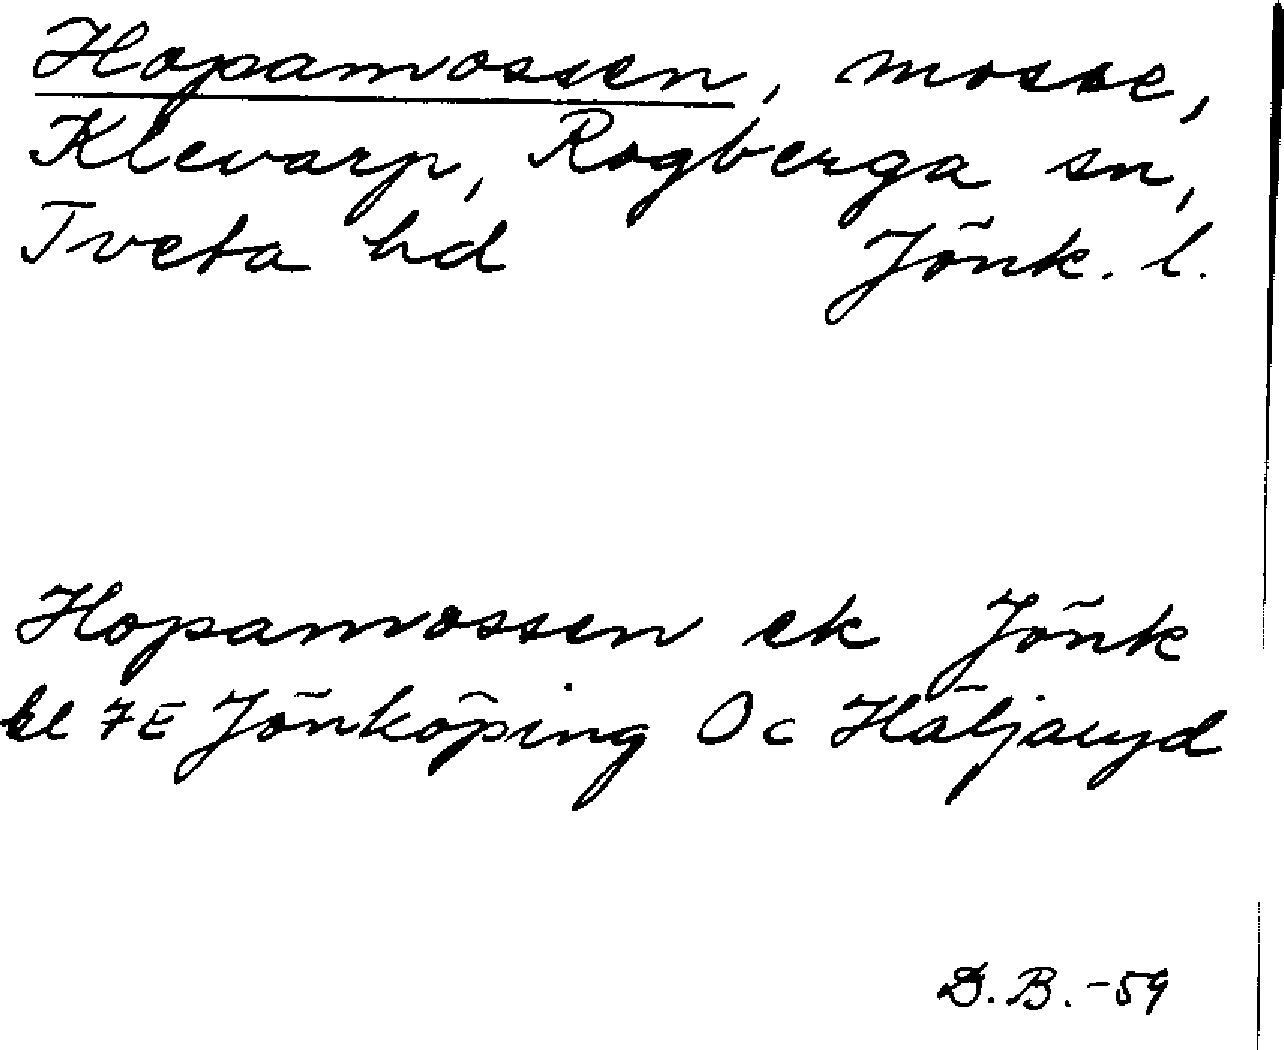 Hopamossen, mosse,
Klevarp, Rogberga sn,
Tveta hd Jönk. l.
Hopamossen ek Jönk
bl 7E Jönköping 0c Häljaryd
D.B.-59